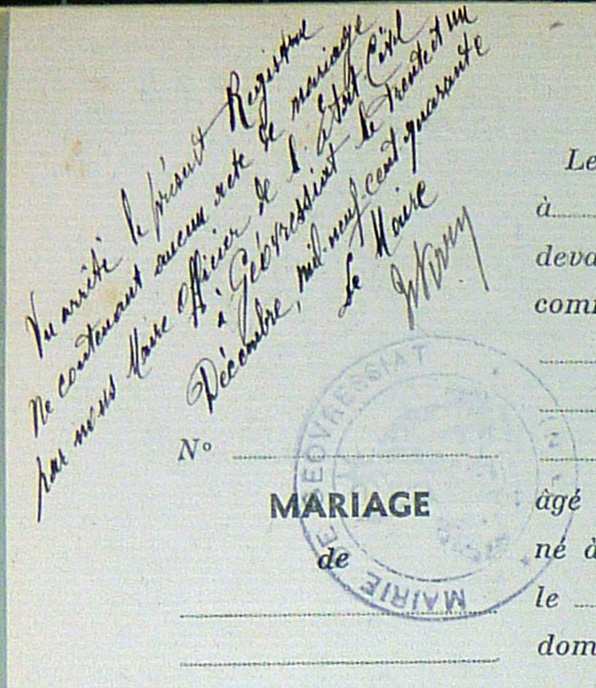 Vu arrêté le présent Registre
ne contenant aucun acte de mariage
par nous Maire Officier de l'Etat Civil
à Géovressiat le trente et un
Décembre, mil neuf cent quarante
Le Maire
N°
MARIAGE
de
MAIRIE DE GEOVRESSIAT
Le
à
deva
comm
âgé
né à
le
dom